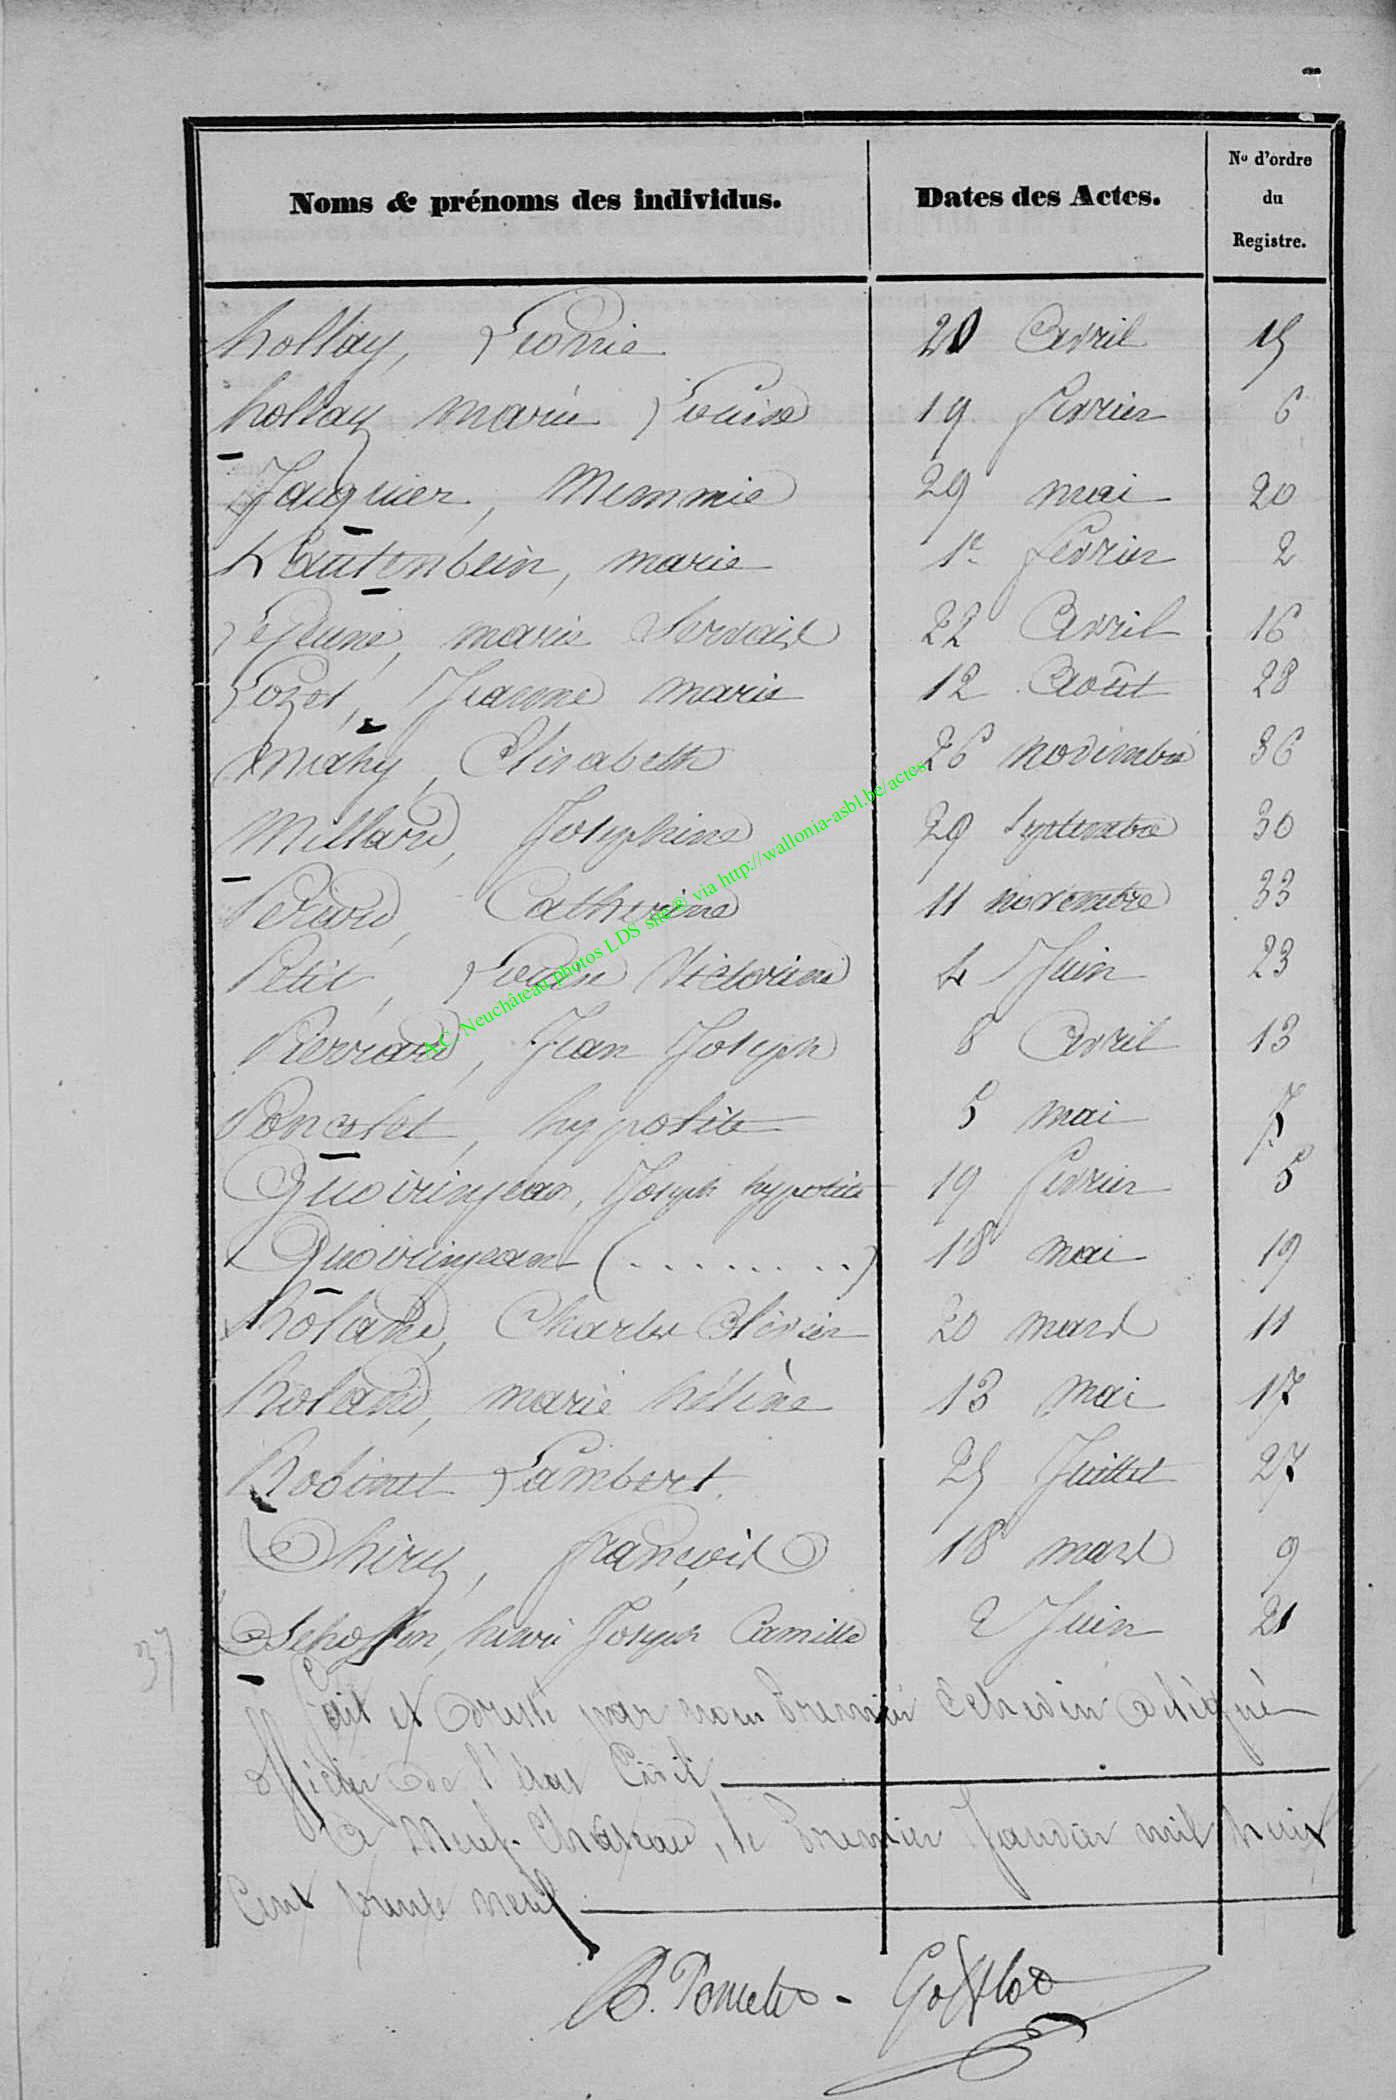 Noms & prénoms des individus.
Dates des Actes.
No d'ordre
du
Registre.
hollay, Léonie 20 Avril 15
hollay marie Louise 19 février 6
Jacquier, Memmie 29 mai 20
Kautenbein, marie 1er février 2
Lejeune, marie Servais 22 Avril 16
Lozet, Jeanne marie 12 Août 28
mahy, Elisabeth 26 novembre 36
Millard, Joséphine 29 Septembre 30
Catherine 11 novembre 33
Petit, Victorine 4 Juin 23
Pierrard, Jean Joseph 8 Avril 13
Poncelet, hypolite 5 mai 7
Quoirinjean, Joseph hypolite 19 février 5
Quoirinjean (. . . . . . . .) 18 mai 19
Roland, Charles Olivier 20 mars 11
Roland, marie hélène 13 mai 17
Robinet Lambert 25 Juillet 27
Thiry, françois 18 mars 9
henri Joseph Camille 2 Juin 21
37
fait et dressé par nous Premier Echevin délégué
officier de l'état Civil
A Neuf-Château, le Premier Janvier mil huit
Cent trente neuf
AC. Neuchâteau photos LDS site© via http://wallonia-asbl.be/actes